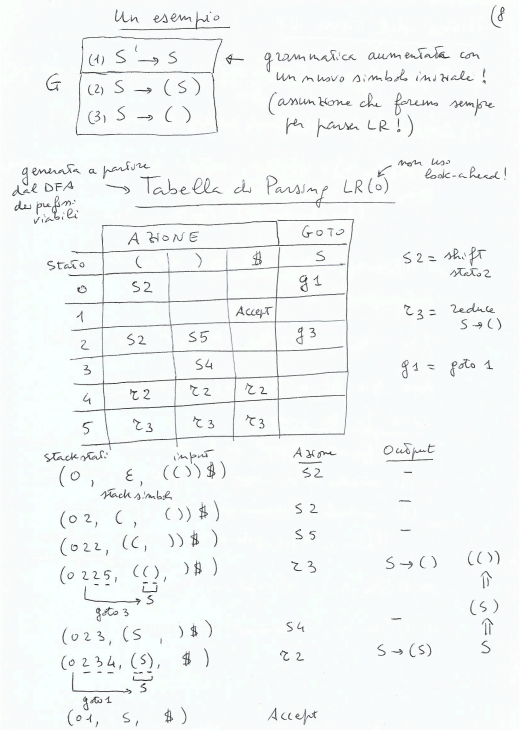 Un esempio
(8
G
(1) S' → S
(2) S → (S)
(3) S → ()
← grammatica aumentata con
un nuovo simbolo iniziale!
(assunzione che faremo sempre
per parser LR!)
generata a partire
dal DFA
dei prefissi
viabili
→ Tabella di Parsing LR(0)
non uso
look-ahead!
AZIONE GOTO
Stato ( ) $ S
0 S2 g1
1 Accept
2 S2 S5 g3
3 S4
4 r2 r2 r2
5 r3 r3 r3
S2 = shift
stato 2
r3 = reduce
S → ()
g1 = goto 1
stack stati input Azione Output
(0, ε, (())$) S2 –
stack simboli
(02, (, ())$) S2 –
(022, ((, ))$) S5 –
(0225, ((), )$) r3 S → () (())
S ⇑
goto 3 (S)
(023, (S, )$) S4 – ⇑
(0234, (S), $) r2 S → (S) S
S
goto 1
(01, S, $) Accept